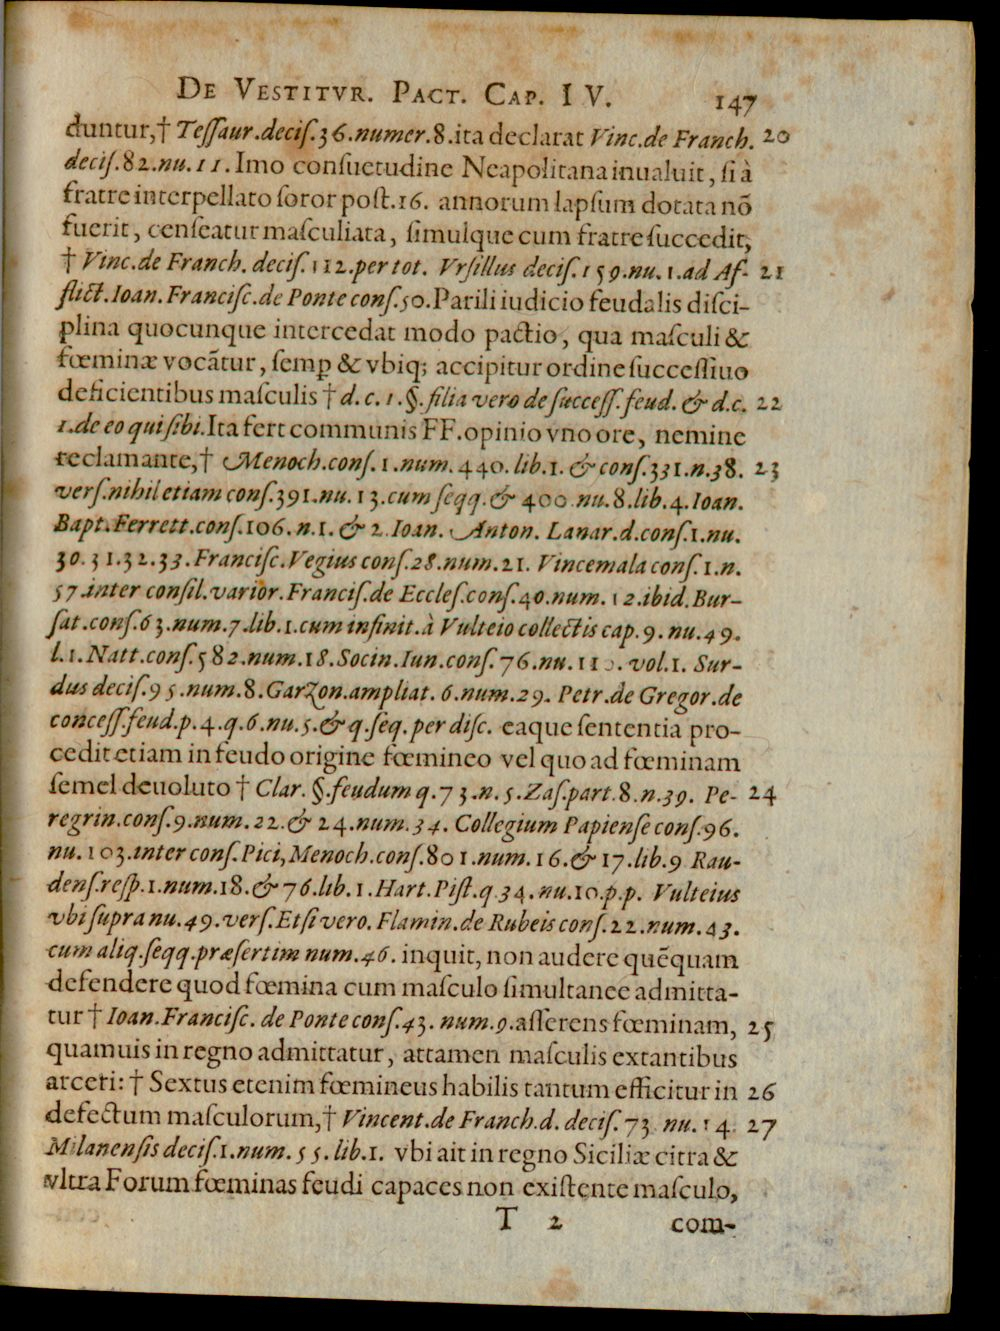 De Vestitvr. Pact. Cap. I V. 147
duntur,† Teſſaur.deciſ.36.numer.8.ita declarat Vinc.de Franch. 20
deciſ.82.nu.11. Imo conſuetudine Neapolitana inualuit, ſi à
fratre interpellato ſoror poſt.16. annorum lapſum dotata nō
fuerit, cenſeatur maſculiata, ſimulque cum fratre ſuccedit,
† Vinc.de Franch. deciſ. 112.per tot. Vrſillus deciſ.159.nu.1.ad Af- 21
flict.Ioan.Franciſc.de Ponte conſ.50.Parili iudicio feudalis diſci-
plina quocunque intercedat modo pactio, qua maſculi &
fœminæ vocātur, ſemꝑ & vbiq; accipitur ordine ſucceſſiuo
deficientibus maſculis † d. c. 1.§.filia vero de ſucceſſ.feud. & d.c. 22
1.de eo qui ſibi.Ita fert communis FF.opinio vno ore, nemine
reclamante,† Menoch.conſ.1.num.440.lib.1. & conſ.331.n.38. 23
verſ.nihil etiam conſ.391.nu.13.cum ſeqq.& 400.nu.8.lib.4.Ioan.
Bapt.Ferrett.conſ.106.n.1. & 2.Ioan. Anton. Lanar.d.conſ.1.nu.
30.31.32.33.Franciſc.Vegius conſ.28.num.21. Vincemala conſ.1.n.
57.inter conſil.varior.Franciſ.de Eccleſ.conſ.40.num.12.ibid.Bur-
ſat.conſ.63.num.7.lib.1.cum infinit.à Vulteio collectis cap.9.nu.49.
l.1.Natt.conſ.582.num.18.Socin.Iun.conſ.76.nu.110.vol.1. Sur-
dus deciſ.95.num.8.Garzon.ampliat.6.num.29. Petr.de Gregor.de
conceſſ.feud.p.4.q.6.nu.5.& q.ſeq.per diſc. eaque ſententia pro-
cedit etiam in feudo origine fœmineo vel quo ad fœminam
ſemel deuoluto † Clar. §.feudum q.73.n.5.Zaſ.part.8.n.39. Pe- 24
regrin.conſ.9.num.22.& 24.num.34. Collegium Papienſe conſ.96.
nu.103.inter conſ.Pici,Menoch.conſ.801.num.16.& 17.lib.9 Rau-
denſ.reſp.1.num.18.& 76.lib.1.Hart.Piſt.q.34.nu.10.p.p. Vulteius
vbi ſupra nu.49.verſ.Etſi vero. Flamin.de Rubeis conſ.22.num.43.
cum aliq.ſeqq.præſertim num.46. inquit, non audere quēquam
defendere quod fœmina cum maſculo ſimultanee admitta-
tur † Ioan.Franciſc. de Ponte conſ.43. num.9.aſſerens fœminam, 25
quamuis in regno admittatur, attamen maſculis extantibus
arceri: † Sextus etenim fœmineus habilis tantum efficitur in 26
defectum maſculorum,† Vincent.de Franch.d. deciſ.73 nu.14. 27
Milanenſis deciſ.1.num.55.lib.1. vbi ait in regno Siciliæ citra &
vltra Forum fœminas feudi capaces non exiſtente maſculo,
T 2 com-